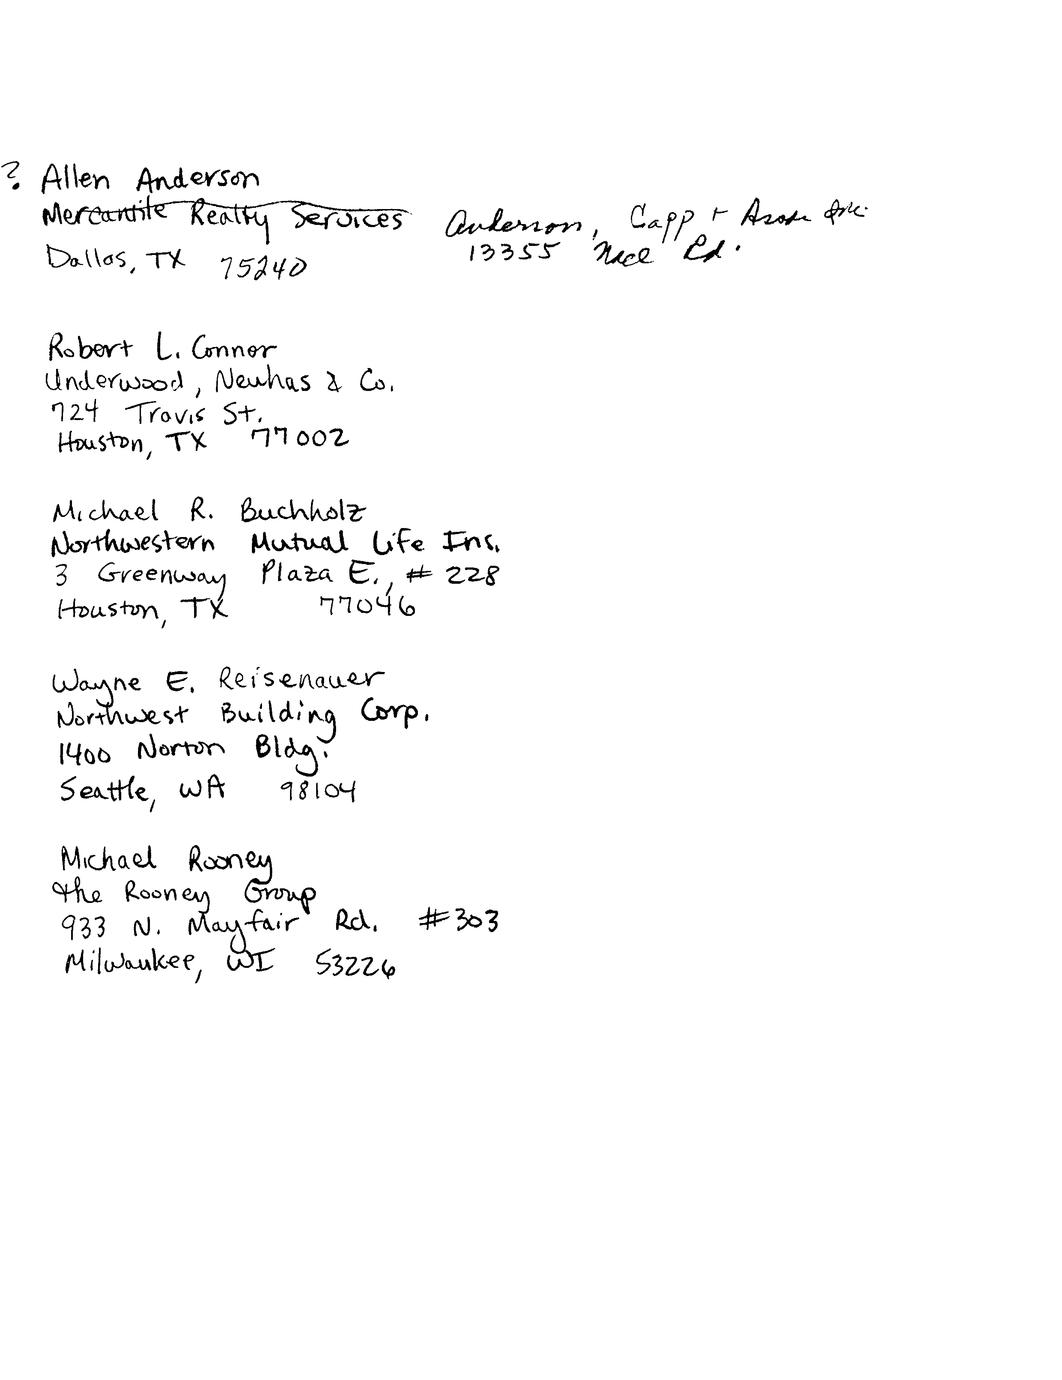 ? Allen Anderson
Mercantile Realty Services Anderson, Capp + Assoc Inc.
Dallas, TX 75240 13355 Noel Rd.
Robert L. Connor
Underwood, Neuhas & Co.
724 Travis St.
Houston, TX 77002
Michael R. Buchholz
Northwestern Mutual Life Ins.
3 Greenway Plaza E., # 228
Houston, TX 77046
Wayne E. Reisenauer
Northwest Building Corp.
1400 Norton Bldg.
Seattle, WA 98104
Michael Rooney
the Rooney Group
933 N. Mayfair Rd. #303
Milwaukee, WI 53226